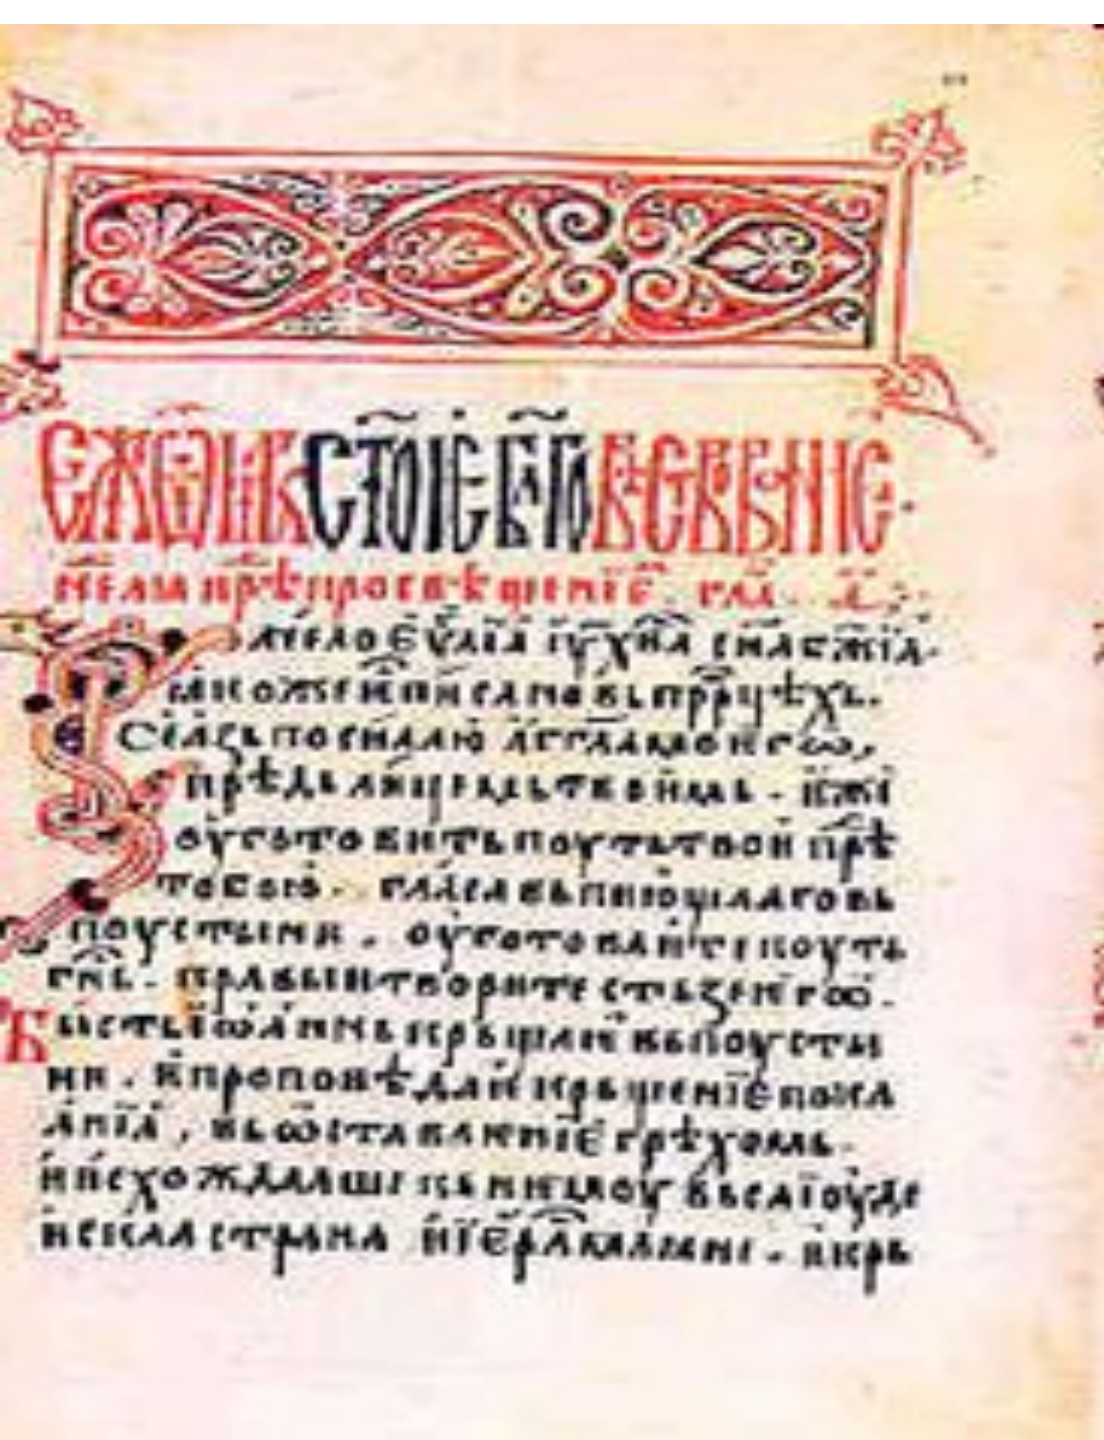 ЕЖѾМРКСТОІЕ҃ѴГ҃ЛБ҃ГОВѢСТВОВАНІЕ.
НЕ҃Лꙗ прѣ҃ просвѣщенїе҃. гла҃. а҃.
Зачело еѵ҃лїа і҃ѵ хв҃а сн҃а бж҃їа.
ꙗкоже и҆ писано вь пррⷪ҇цѣхь.
Се азь посилаю аг҃гла моего,
прѣдь лицемь твоимь. иже
оуготовить поуть твои прѣ҃
тобою. глась вьпиющаго вь
поустыни. оуготоваите поуть
гн҃ь. правы творите стьзе его.
Бысть їѡаннь крьщаи вь поусты
ни. и проповѣдаи крьщенїе пока
анїа, вь ѡставлкнїе грѣхомь.
и исхождааше кь нкмоу вьса їоуде
искаа страна и їер҃лмлꙗне. и крь